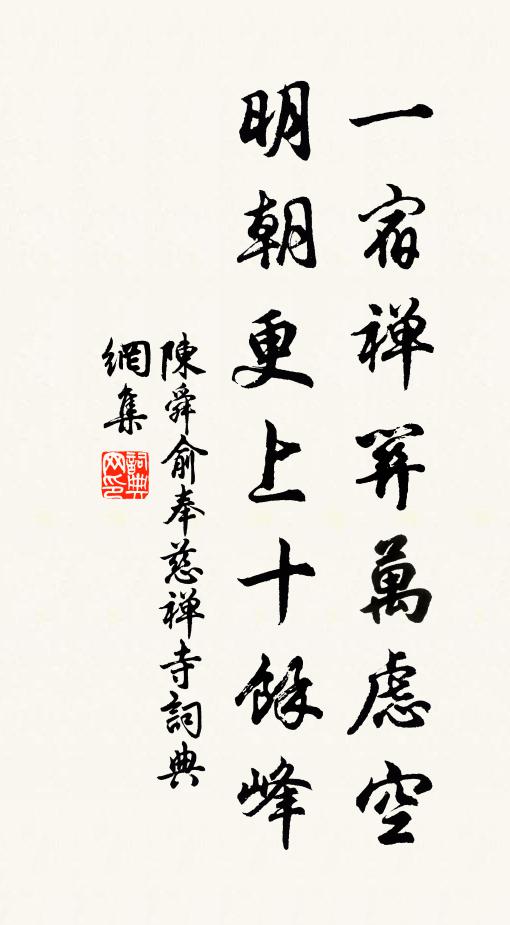 一宿禅關萬慮空
明朝更上十餘峰
陳舜俞奉慈禅寺詞典
網集
詞典网印